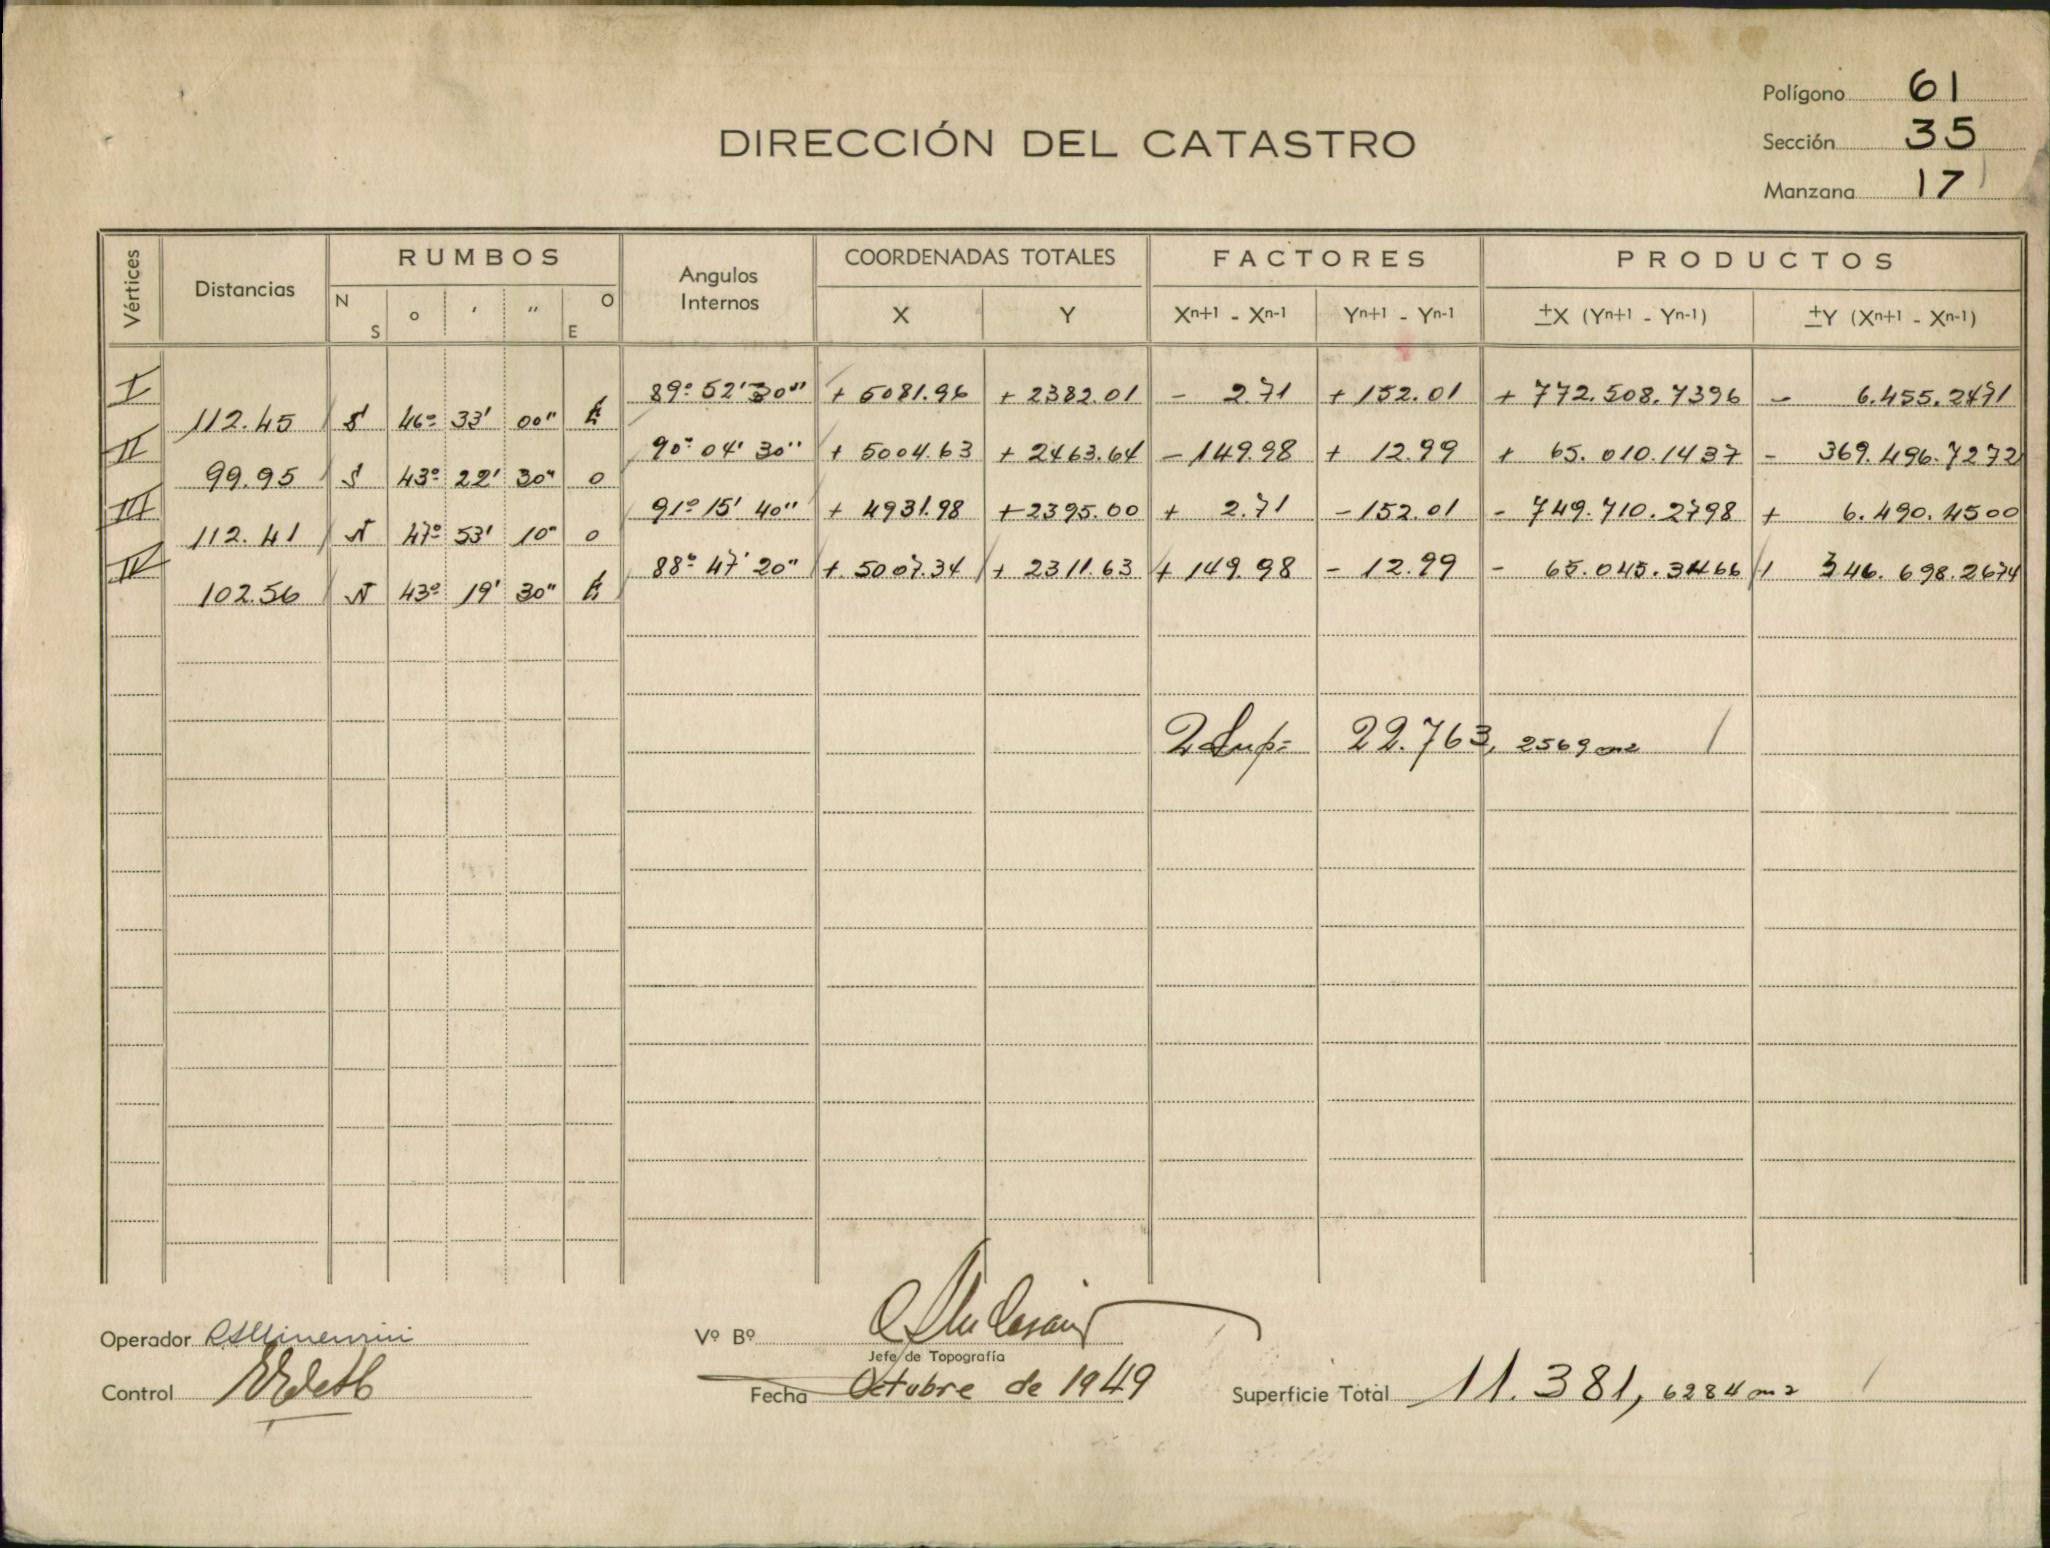 Polígono 61
DIRECCIÓN DEL CATASTRO
Sección 35
Manzana 17
Vértices Distancias RUMBOS Angulos Internos COORDENADAS TOTALES FACTORES PRODUCTOS
N S o ′ ″ O E X Y Xn+1 - Xn-1 Yn+1 - Yn-1 ±X (Yn+1 - Yn-1) ±Y (Xn+1 - Xn-1)
I 89º 52' 30" + 5081.96 + 2382.01 - 2.71 + 152.01 + 772.508.7396 - 6.455.2471
112.45 S 46º 33' 00" E
II 90º 04' 30" + 5004.63 + 2463.64 - 149.98 + 12.99 + 65.010.1437 - 369.496.7272
99.95 S 43º 22' 30" O
III 91º 15' 40" + 4931.98 + 2395.00 + 2.71 - 152.01 - 749.710.2798 + 6.490.4500
112.41 N 47º 53' 10" O
IV 88º 47' 20" + 5007.34 + 2311.63 + 149.98 - 12.99 - 65.045.3466 + 346.698.2674
102.56 N 43º 19' 30" E
2 Sup= 22.763, 2569 m2
Operador
Vº Bº
Jefe de Topografía
Control
Fecha Octubre de 1949
Superficie Total 11.381, 6284 m2